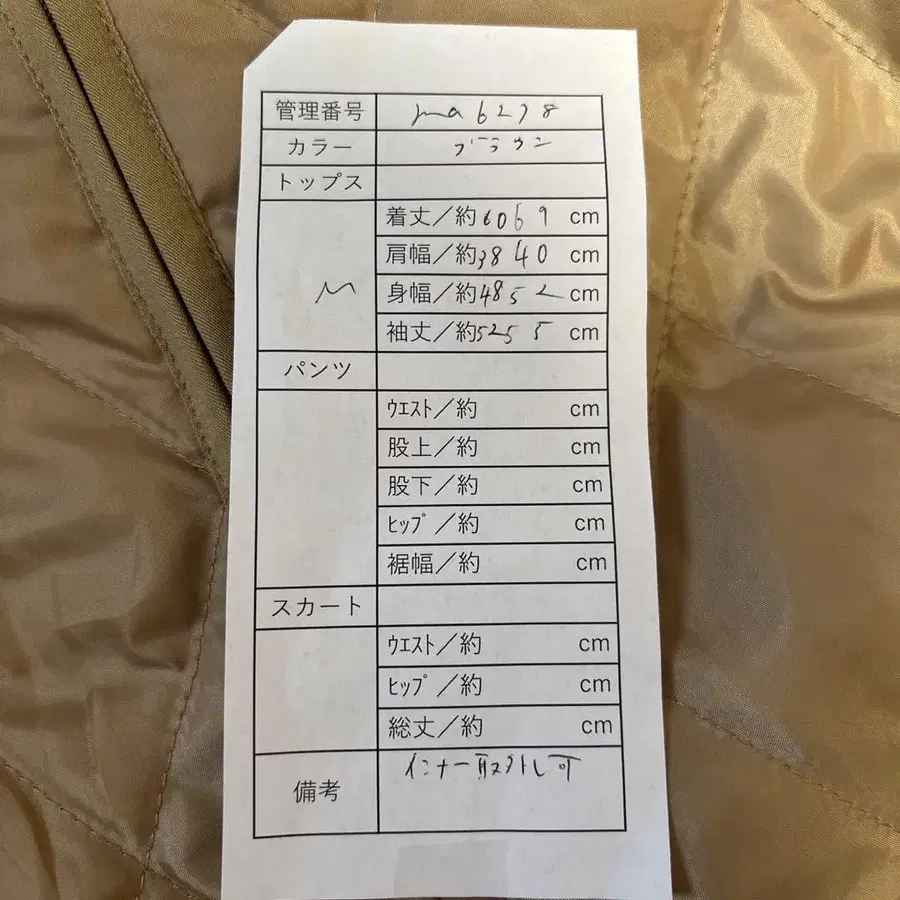 管理番号 ma6278
カラー ブラウン
トップス
M
着丈／約60 69 cm
肩幅／約38 40 cm
身幅／約48 52 cm
袖丈／約52 55 cm
パンツ
ｳｴｽﾄ／約 cm
股上／約 cm
股下／約 cm
ﾋｯﾌﾟ／約 cm
裾幅／約 cm
スカート
ｳｴｽﾄ／約 cm
ﾋｯﾌﾟ／約 cm
総丈／約 cm
備考 インナー取外し可